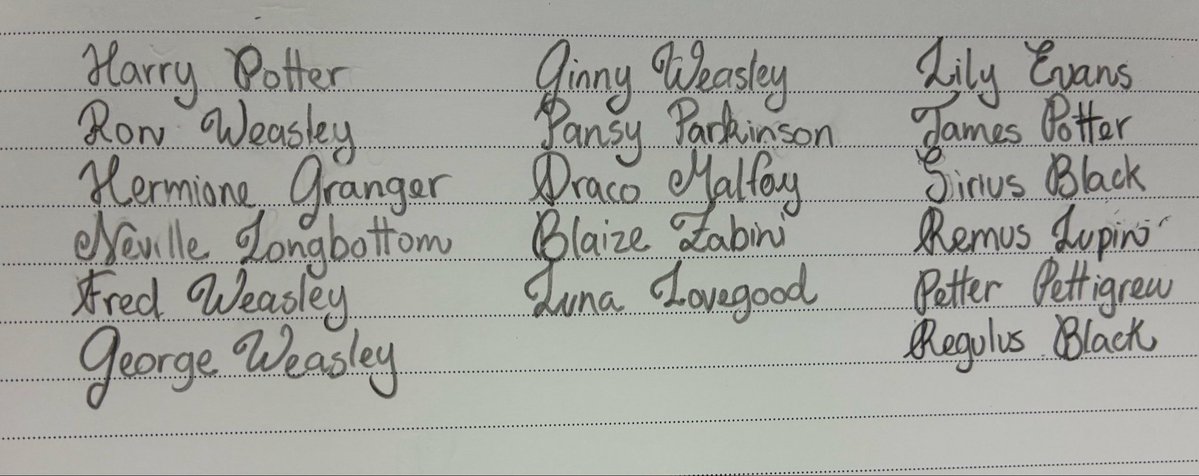 Harry Potter
Ron Weasley
Hermione Granger
Neville Longbottom
Fred Weasley
George Weasley
Ginny Weasley
Pansy Parkinson
Draco Malfoy
Blaize Zabini
Luna Lovegood
Lily Evans
James Potter
Sirius Black
Remus Lupin
Petter Pettigrew
Regulus Black